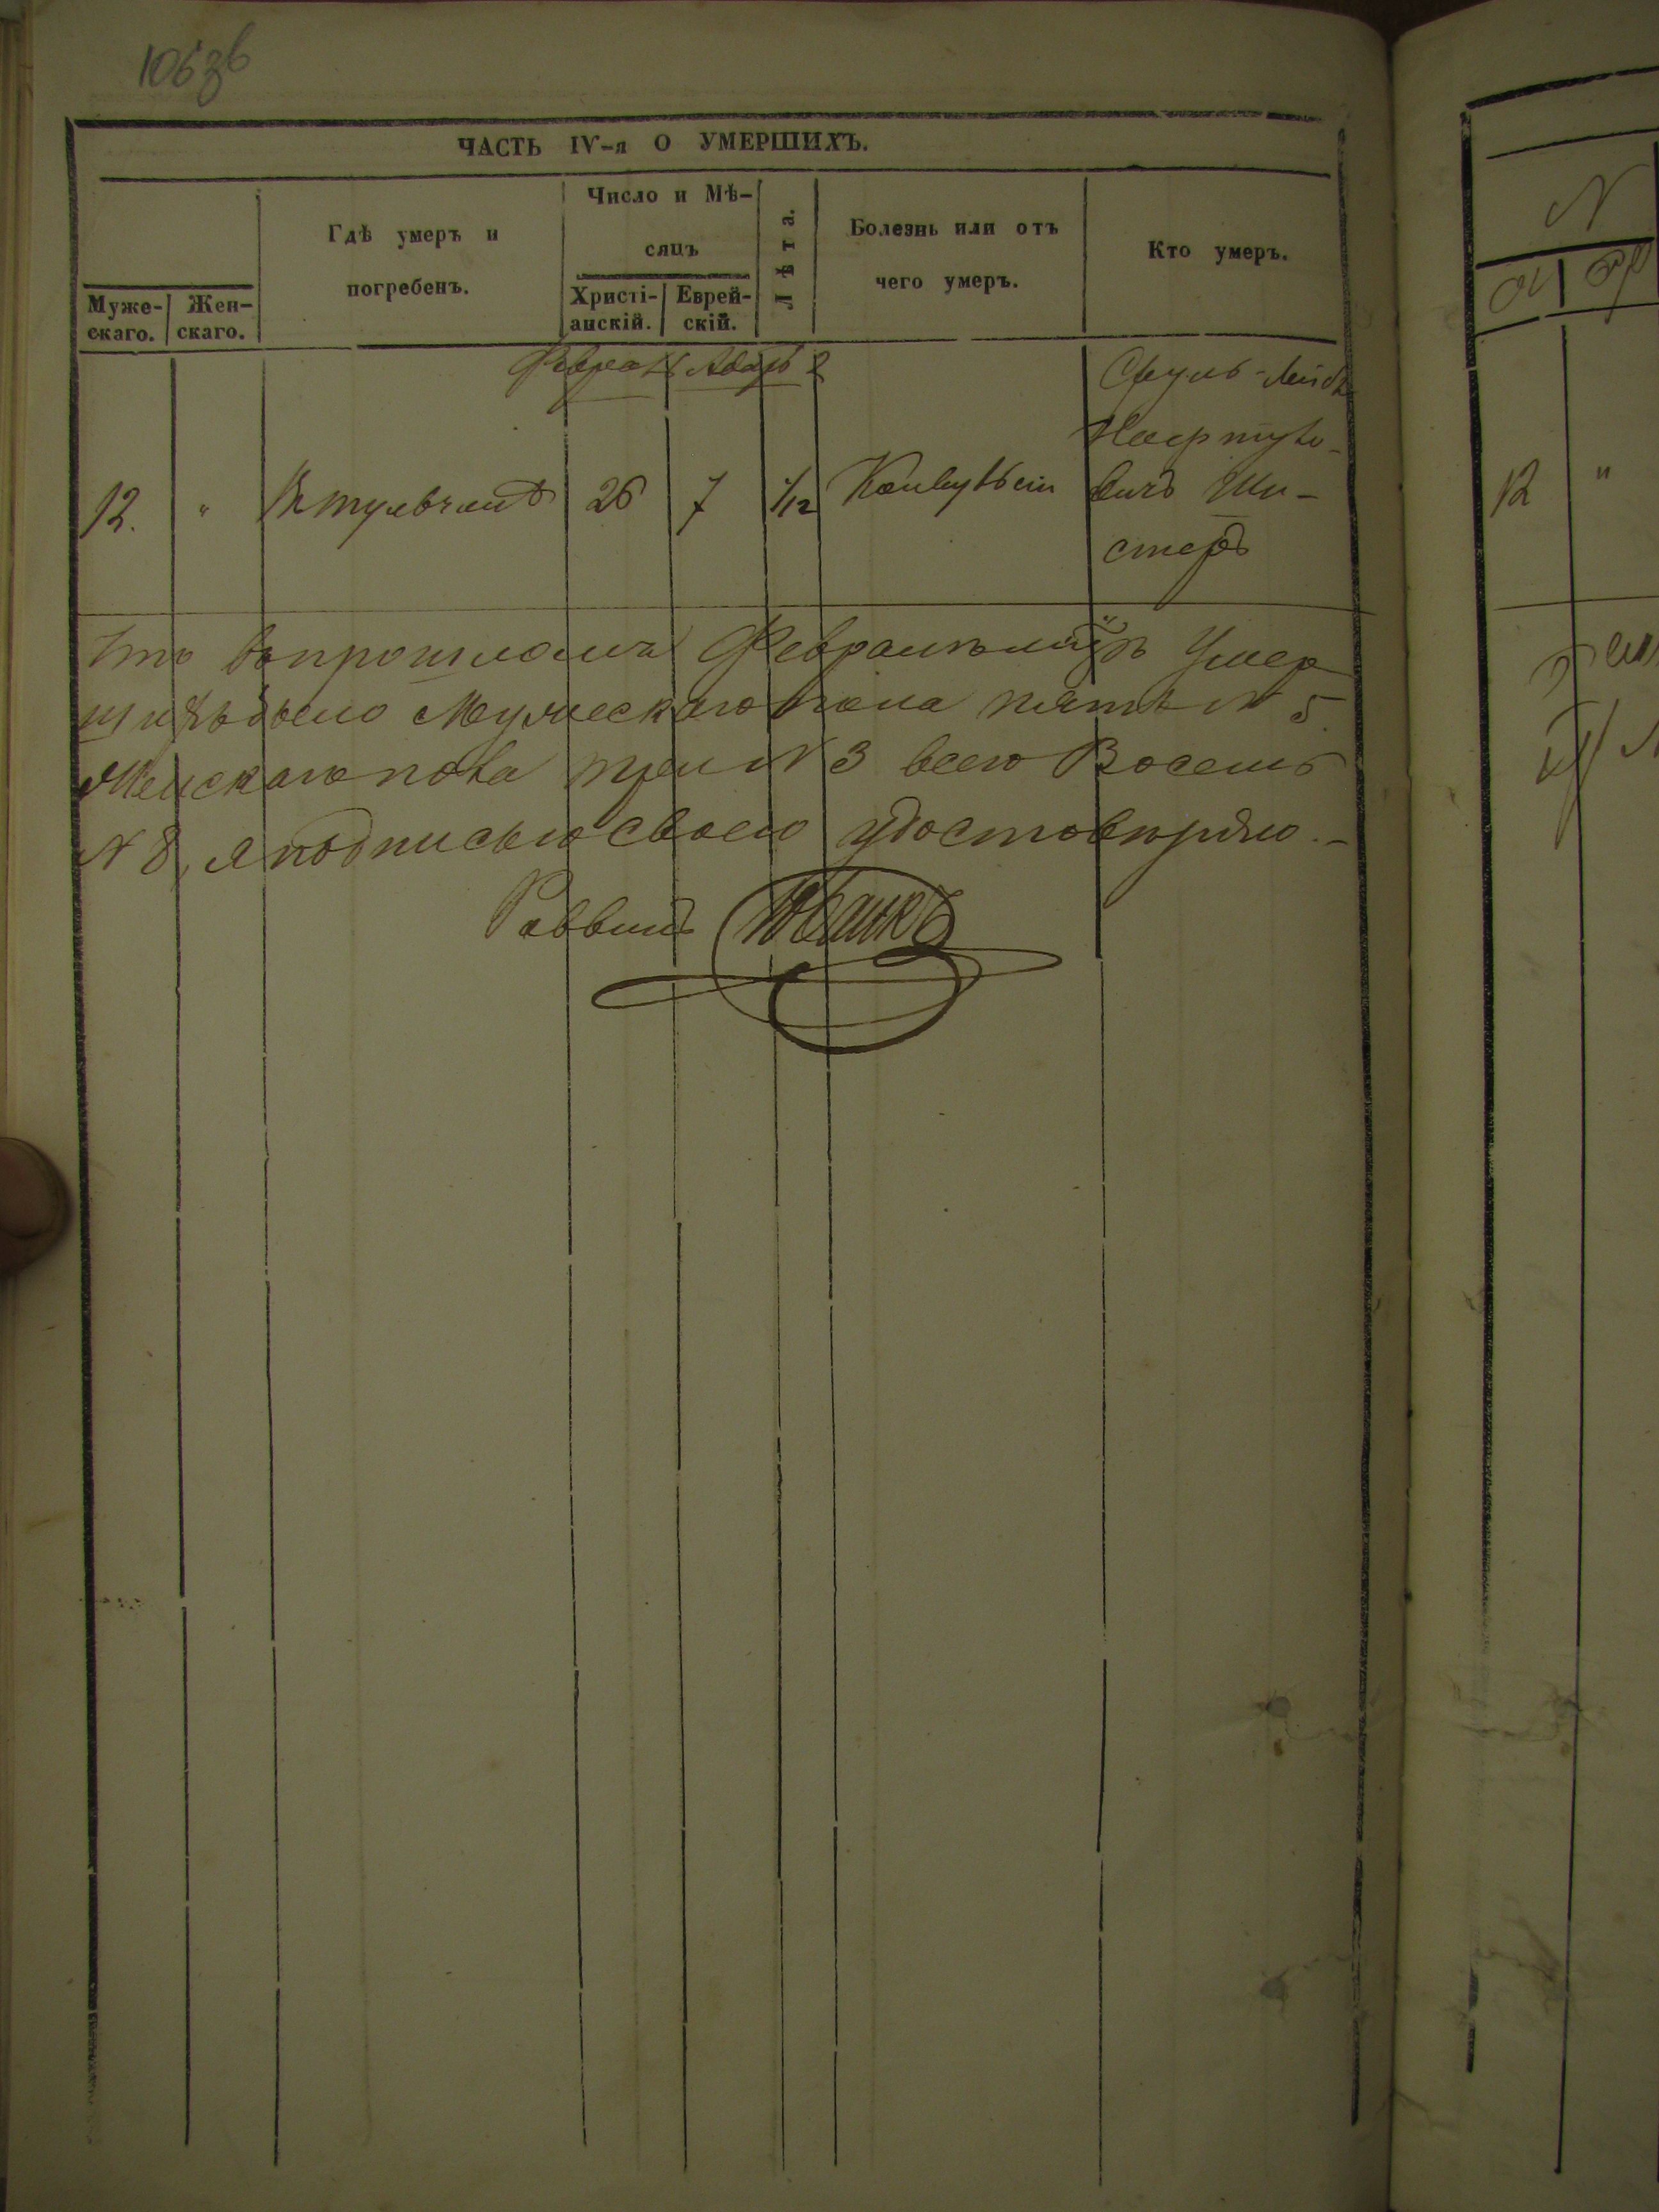 ЧАСТЬ IV-я О УМЕРШИХЪ.
Муже-
скаго.
Жен-
скаго.
Гдѣ умеръ и
погребенъ.
Число и Мѣ-
сяцъ
Христі-
анскій.
Еврей-
скій.
Лѣта.
Болезнь или отъ
чего умеръ.
Кто умеръ.
Адаръ 2
12. " 26 7 1/12
Сруль-Лейба
вичъ Ши-
стеръ
Что въ прошломъ Февралѣ Умер
шихъ было Мужескаго пола пять N 5
Женскаго пола три N 3 всего Восемь
N 8, я подписью своею удостовѣряю.-
Раввинъ
N
12 "